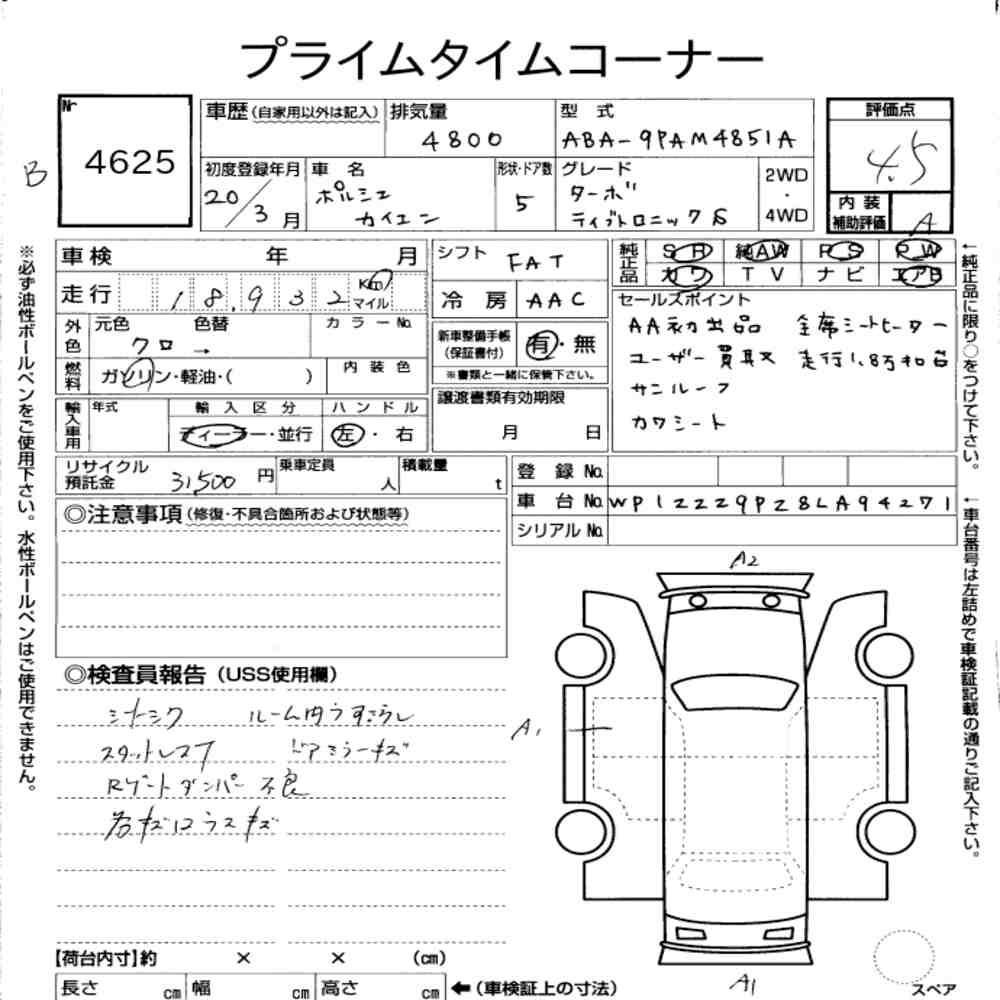 プライムタイムコーナー
Nr 4625
B
車歴(自家用以外は記入) 排気量 4800 型式 ABA-9PAM4851A
評価点 4.5
初度登録年月 20/3月 車名 ポルシェ カイエン 形状・ドア数 5 グレード ターボ ティプトロニックS 2WD・4WD
内装補助評価 A
車検 年 月
走行 18,932 Km マイル
外色 元色 クロ → 色替 カラーNo.
燃料 ガソリン・軽油・( ) 内装色
輸入車用 年式 輸入区分 ディーラー・並行 ハンドル 左・右
シフト FAT
冷房 AAC
新車整備手帳(保証書付) 有・無
※書類と一緒に保管下さい。
譲渡書類有効期限 月 日
純正品 SR 純AW PS PW
カワ TV ナビ エアB
セールスポイント
AA初出品 全席シートヒーター
ユーザー買取 走行1.8万km台
サンルーフ
カワシート
リサイクル預託金 31,500円 乗車定員 人 積載量 t
登録No.
車台No. WP1ZZZ9PZ8LA94271
シリアルNo.
◎注意事項(修復・不具合箇所および状態等)
◎検査員報告(USS使用欄)
シートシワ ルーム内うすごうし
スタットレス7 ドアミラーキズ
Rゲートダンパー不良
各キズ
A2
A1
A1
【荷台内寸】約 × × (cm)
長さ cm 幅 cm 高さ cm ←(車検証上の寸法)
スペア
※必ず油性ボールペンをご使用下さい。水性ボールペンはご使用できません。
←純正品に限り○をつけて下さい。
←車台番号は左詰めで車検証記載の通りご記入下さい。